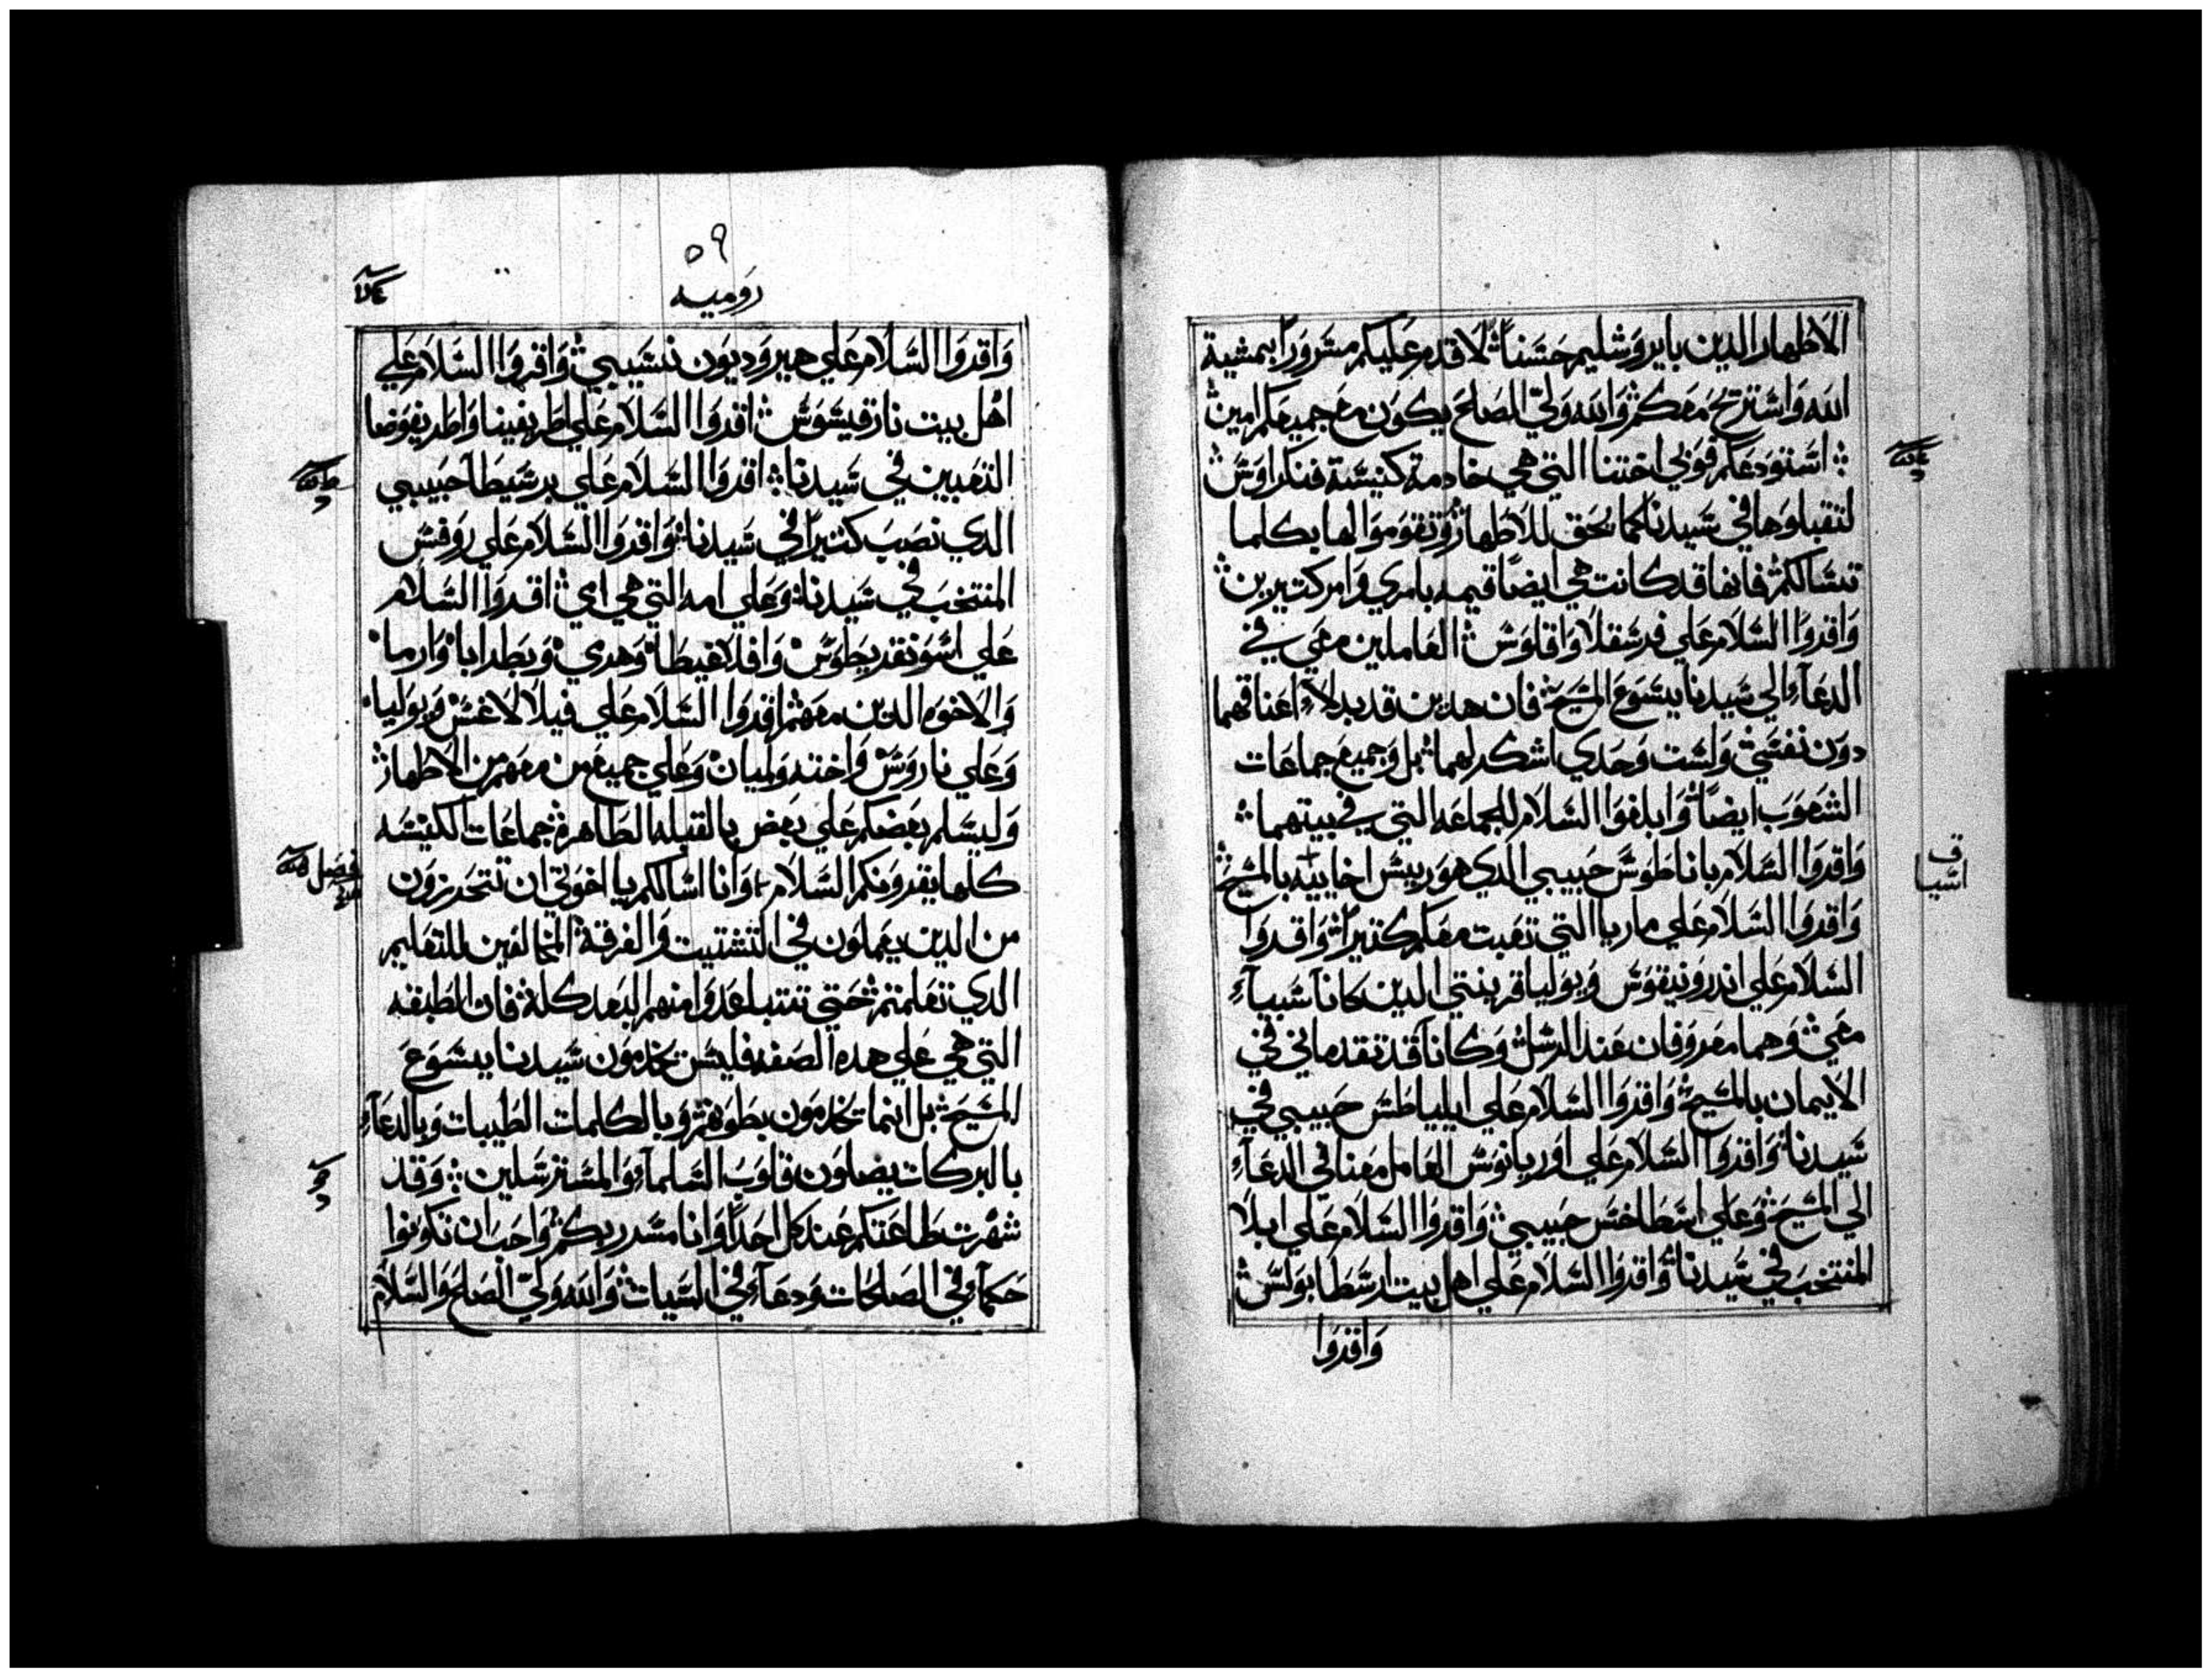 الاطهار الدين بايروشليم حسناً لاقدم عليكم مسروراً بمشية
الله واستريح معكم والله ولي الصلح يكون مع جميعكم امين
استودعكم فوبي اختنا التي هي خادمة كنيسة فنكراوس
لتقبلوها في سيدنا كما يحق للاطهار وتقوموا لها بكلما
تسالكم فانها قد كانت هي ايضاً قيمه بامري وامر كتيرين
واقروا السلام على فرسقلا واقلوس العاملين معي في
الدعآء الي سيدنا يسوع المسيح فان هدين قد بدلآ اعناقهما
دون نفسي ولست وحدي اشكر لهما بل وجميع جماعات
الشعوب ايضاً وابلغوا السلام للجماعه التي في بيتهما
واقروا السلام باناطوس حبيبي الدي هو رييس اخاييه بالمسيح
ف
اسيا
واقروا السلام علي ماريا التي تعبت معكم كتيراً واقروا
السلام علي اندرونيقوس وبوليا قرينتي الدين كانا سبيآء
معي وهما معروفان عند الرسل وكانا قد تقدماني في
الايمان بالمسيح واقروا السلام علي ايلياطس حبيبي في
سيدنا واقروا السلام علي اوربانوس العامل معنا في الدعآء
الي المسيح وعلي اسطاخس حبيبي واقروا السلام علي ابلا
المنتخب في سيدنا واقروا السلام علي اهل بيت ارسطابولس
واقروا
٥٩
روميه
واقروا السلام علي هيروديون نسيبي واقروا السلام علي
اهل بيت نارقيسوس اقروا السلام علي اطريفينا واطريفوضا
التعبين في سيدنا اقروا السلام علي برسيطا حبيبي
الدي نصب كتيراً في سيدنا واقروا السلام علي روفس
المنتخب في سيدنا وعلي امه التي هي امي اقروا السلام
علي اسونقريطوس وافلاغيطا وهرمي وبطرابا وارما
والاخوه الدين معهم اقروا السلام علي فيلالاغس وبوليا
وعلي ناروس واخته ولميان وعلي جميع من معهم من الاطهار
وليسلم بعضكم علي بعض بالقبله الطاهره جماعات الكنيسه
كلها يقرونكم السلام وانا اسالكم يا اخوتي ان تتحرزون
فصل
من الدين يعملون في التشتيت والفرقة المخالفين للتعليم
الدي تعلمتم حتي تتباعدوا منهم البعد كله فان الطبقه
التي هي علي هده الصفه فليس يخدمون سيدنا يسوع
المسيح بل انما يخدمون بطونهم وبالكلمات الطيبات وبالدعآء
بالبركات يضلون قلوب السلمآء والمسترسلين وقد
شهرت طاعتكم عند كل احد وانا مسرر بكم واحب ان تكونوا
حكمآء في الصالحات ودعآء في السيات والله ولي الصلح والسلام